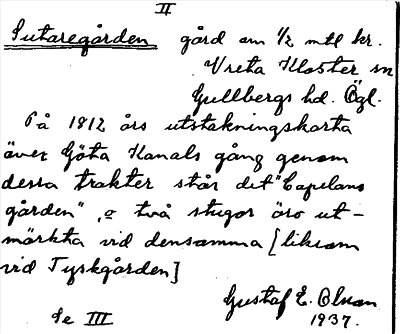 II
Sutaregården gård om 1/2 mtl kr.
Vreta Kloster sn
Gullbergs hd. Ögl.
På 1812 års utstakningskarta
över Göta Kanals gång genom
dessa trakter står det "Capelans
gården", o två stugor äro ut-
märkta vid densamma [liksom
vid Tyskgården]
Gustaf E. Olsson
1937.
Se III